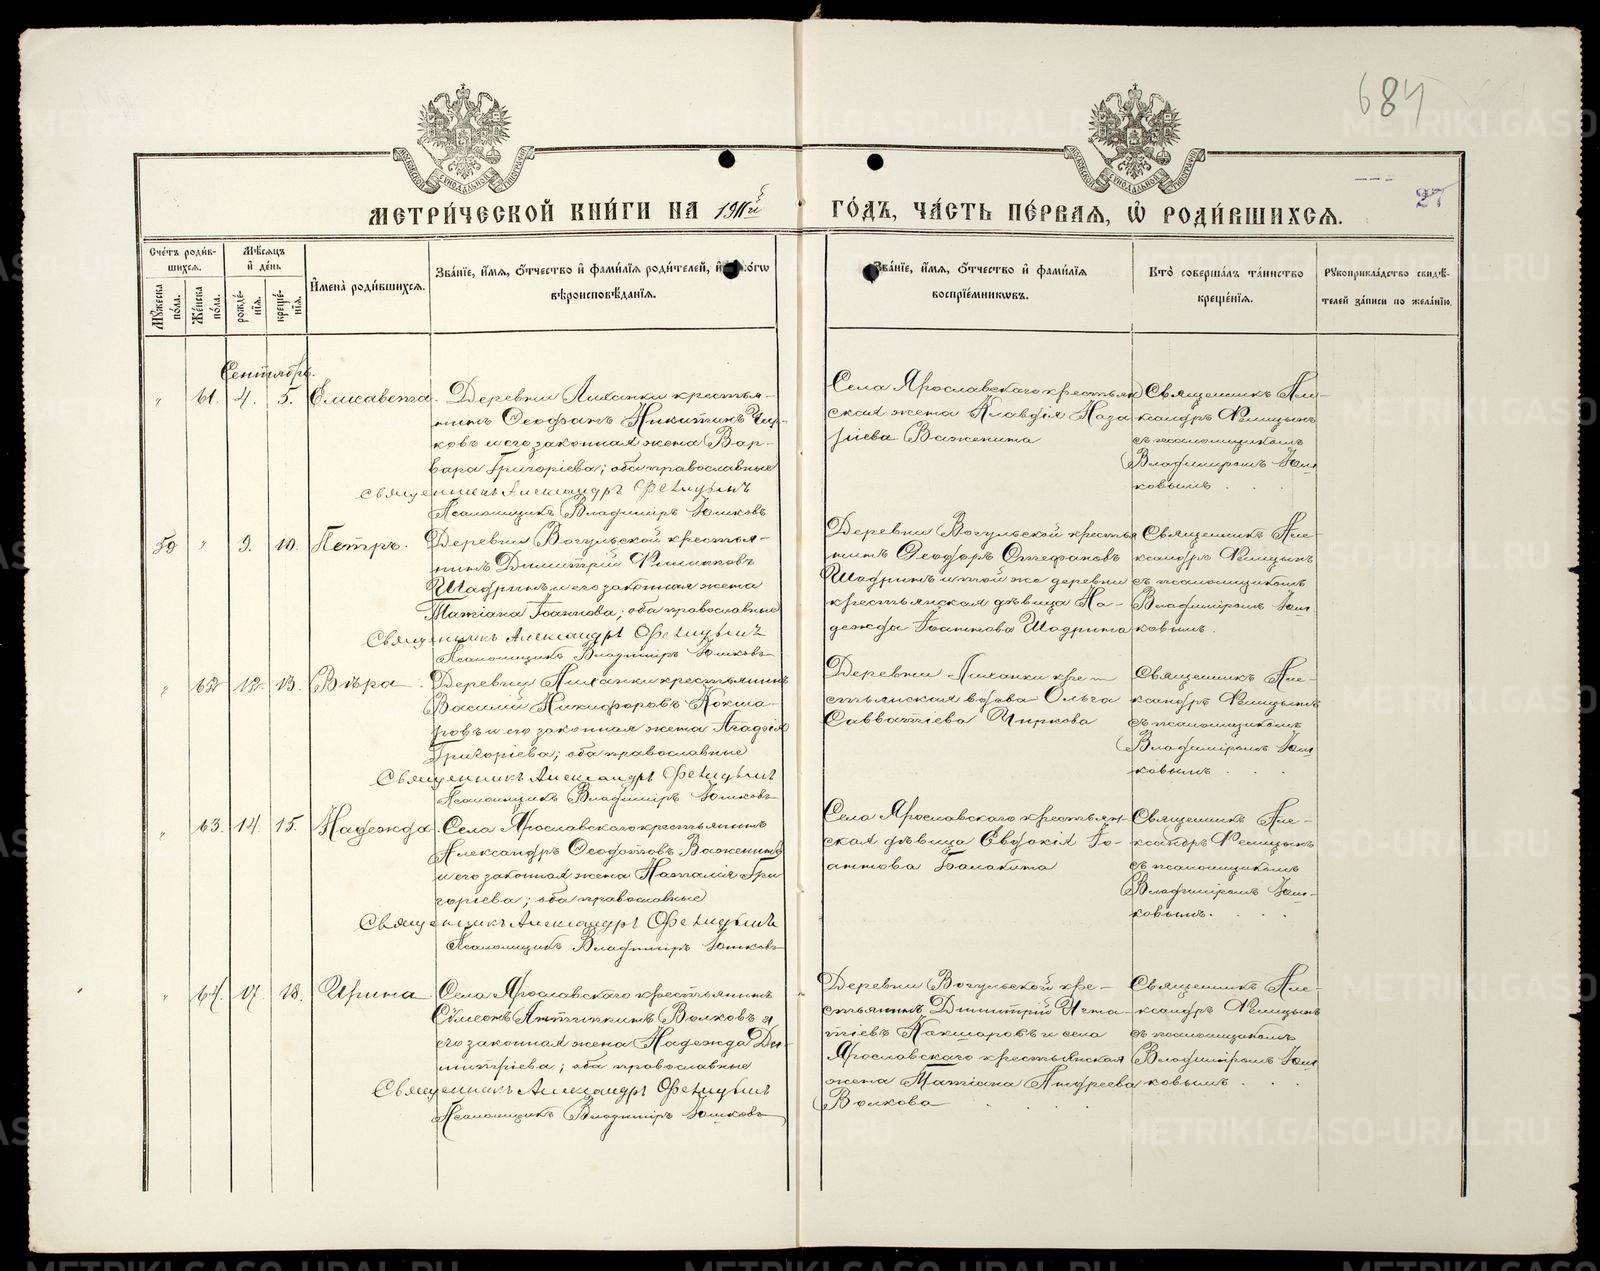 684
27
МЕТРИ́ЧЕСКОЙ КНИ́ГИ НА 1911й ГО́ДЪ, ЧА́СТЬ ПЕ́РВАЯ, Ѿ РОДИ́ВШИХСЯ.
Сче́тъ роди́в-
шихся.
Му́жеска по́ла.
Же́нска по́ла.
Мѣ́сяцъ
и҆ де́нь
рожде́-
нія.
креще́-
нія.
И҆мена̀ роди́вшихся.
Зва́ніе, и҆́мя, ѻ҆́тчество и҆ фами́лія роди́телей, и҆
вѣроисповѣ́данія.
Зва́ніе, и҆́мя, ѻ҆́тчество и҆ фами́лія
воспріе́мниковъ.
Кто̀ соверша́лъ та́инство
креще́нія.
Рукоприкла́дство свидѣ́-
телей за́писи по жела́нію.
Сентябрь.
" 61. 4. 5. Елисавета.
Деревни крестья-
нинъ Ѳеофанъ Никитинъ Чир-
ковъ и его законная жена Вар-
вара Григоріева; оба православные
Священникъ Александръ Фелицынъ
Псаломщикъ Владиміръ Юшковъ
Села Ярославскаго крестьян-
ская жена Клавдія Наза
ріева Важенина
Священникъ Але-
ксандръ Фелицынъ
съ псаломщикомъ
Владиміромъ Юш-
ковымъ
50 " 9. 10. Петръ.
Деревни Вогульской крестья-
нинъ Димитрій Филипповъ
Шадринъ и его законная жена
Татіана Іоаннова; оба православные
Священникъ Александръ Фелицынъ
Псаломщикъ Владиміръ Юшковъ
Деревни Вогульской крестья
нинъ Ѳеодоръ Стефановъ
Шадринъ и той же деревни
крестьянская дѣвица На-
дежда Іоаннова Шадрина
Священникъ Але-
ксандръ Фелицынъ
съ псаломщикомъ
Владиміромъ Юш-
ковымъ.
" 62 12 13. Вѣра
Деревни крестьянинъ
Василій Никифоровъ Кокша-
ровъ и его законная жена Агафія
Григоріева; оба православные
Священникъ Александръ Фелицынъ
Псаломщикъ Владиміръ Юшковъ
Деревни кре-
стьянская вдова Ольга
Савватіева Чиркова
Священникъ Але-
ксандръ Фелицынъ
съ псаломщикомъ
Владиміромъ Юш-
ковымъ
" 63. 14. 15. Надежда.
Села Ярославскаго крестьянинъ
Александръ Ѳеодотовъ Важенинъ
и его законная жена Наталія Гри
горіева; оба православные
Священникъ Александръ Фелицынъ
Псаломщикъ Владиміръ Юшковъ
Села Ярославскаго крестьян-
ская дѣвица Евдокія Іо-
аннова Балакина
Священникъ Але-
ксандръ Фелицынъ
съ псаломщикомъ
Владиміромъ Юш-
ковымъ.
" 64. 17. 18. Ирина
Села Ярославскаго крестьянинъ
Сѵмеонъ Волковъ и
его законная жена Надежда Ди-
митріева; оба православные
Священникъ Александръ Фелицынъ
Псаломщикъ Владиміръ Юшковъ
Деревни Вогульской кре-
стьянинъ Димитрій Игна-
тіевъ Кокшаровъ и села
Ярославскаго крестьянская
жена Татіана Андреева
Волкова
Священникъ Але-
ксандръ Фелицынъ
съ псаломщикомъ
Владиміромъ Юш
ковымъ
METRIKI.GASO-URAL.RU